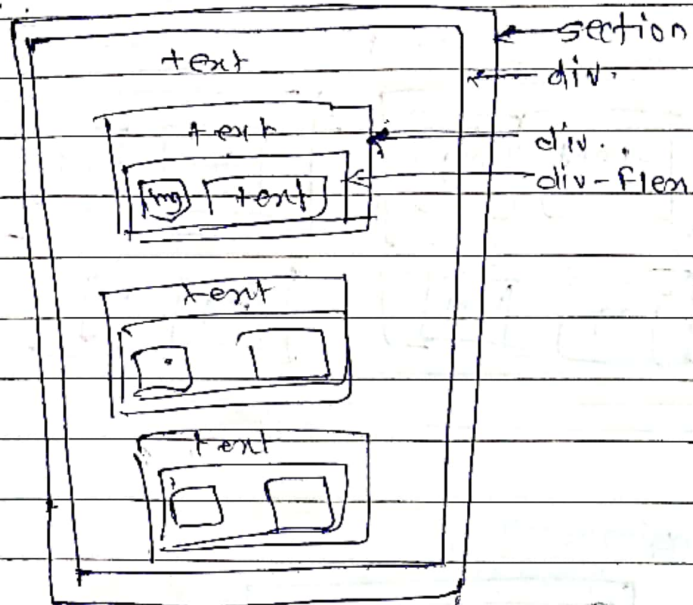 section
text
div.
text
div.
div-flex
img text
text
text